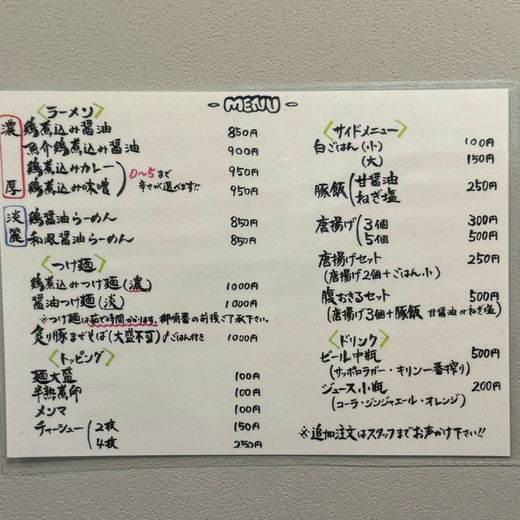 - MENU -
<ラーメン>
濃厚
鶏煮込み醤油 850円
魚介鶏煮込み醤油 900円
鶏煮込みカレー 950円
鶏煮込み味噌 950円
0~5まで
辛さが選べます!!
淡麗
鶏醤油らーめん 850円
和風醤油らーめん 850円
<つけ麺>
鶏煮込みつけ麺(濃) 1000円
醤油つけ麺(淡) 1000円
※つけ麺は茹で時間かかります。御順番の前後ご了承下さい。
炙り豚まぜそば(大盛不可)ごはん付き 1000円
<トッピング>
麺大盛 100円
半熟煮卵 100円
メンマ 100円
チャーシュー 2枚 150円
4枚 250円
<サイドメニュー>
白ごはん(小) 100円
(大) 150円
豚飯 甘醤油 ねぎ塩 250円
唐揚げ 3個 300円
5個 500円
唐揚げセット 250円
(唐揚げ2個+ごはん小)
腹おさるセット 500円
(唐揚げ3個+豚飯 甘醤油orねぎ塩)
<ドリンク>
ビール中瓶 500円
(サッポロラガー・キリン一番搾り)
ジュース小瓶 200円
(コーラ・ジンジャエール・オレンジ)
※追加注文はスタッフまでお声がけ下さい!!